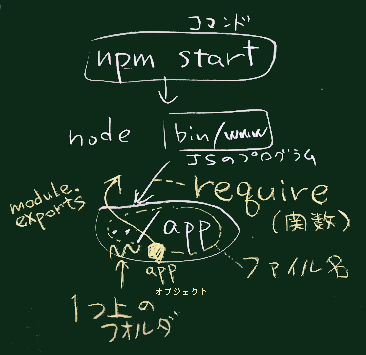 コマンド
npm start
node bin/www
JSのプログラム
require
(関数)
module.
exports
../app
app
オブジェクト
ファイル名
1つ上の
フォルダ